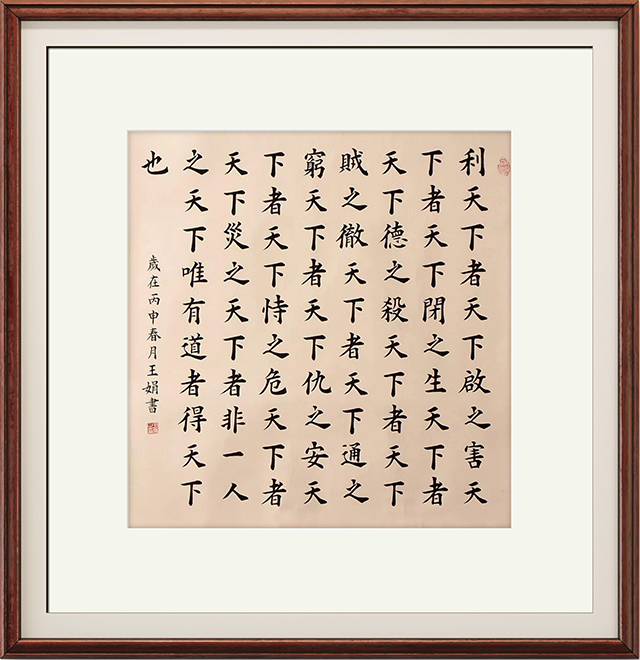 利天下者天下啟之害天
下者天下閉之生天下者
天下德之殺天下者天下
賊之徹天下者天下通之
窮天下者天下仇之安天
下者天下恃之危天下者
天下災之天下者非一人
之天下唯有道者得天下
也
歲在丙申春月王娟書